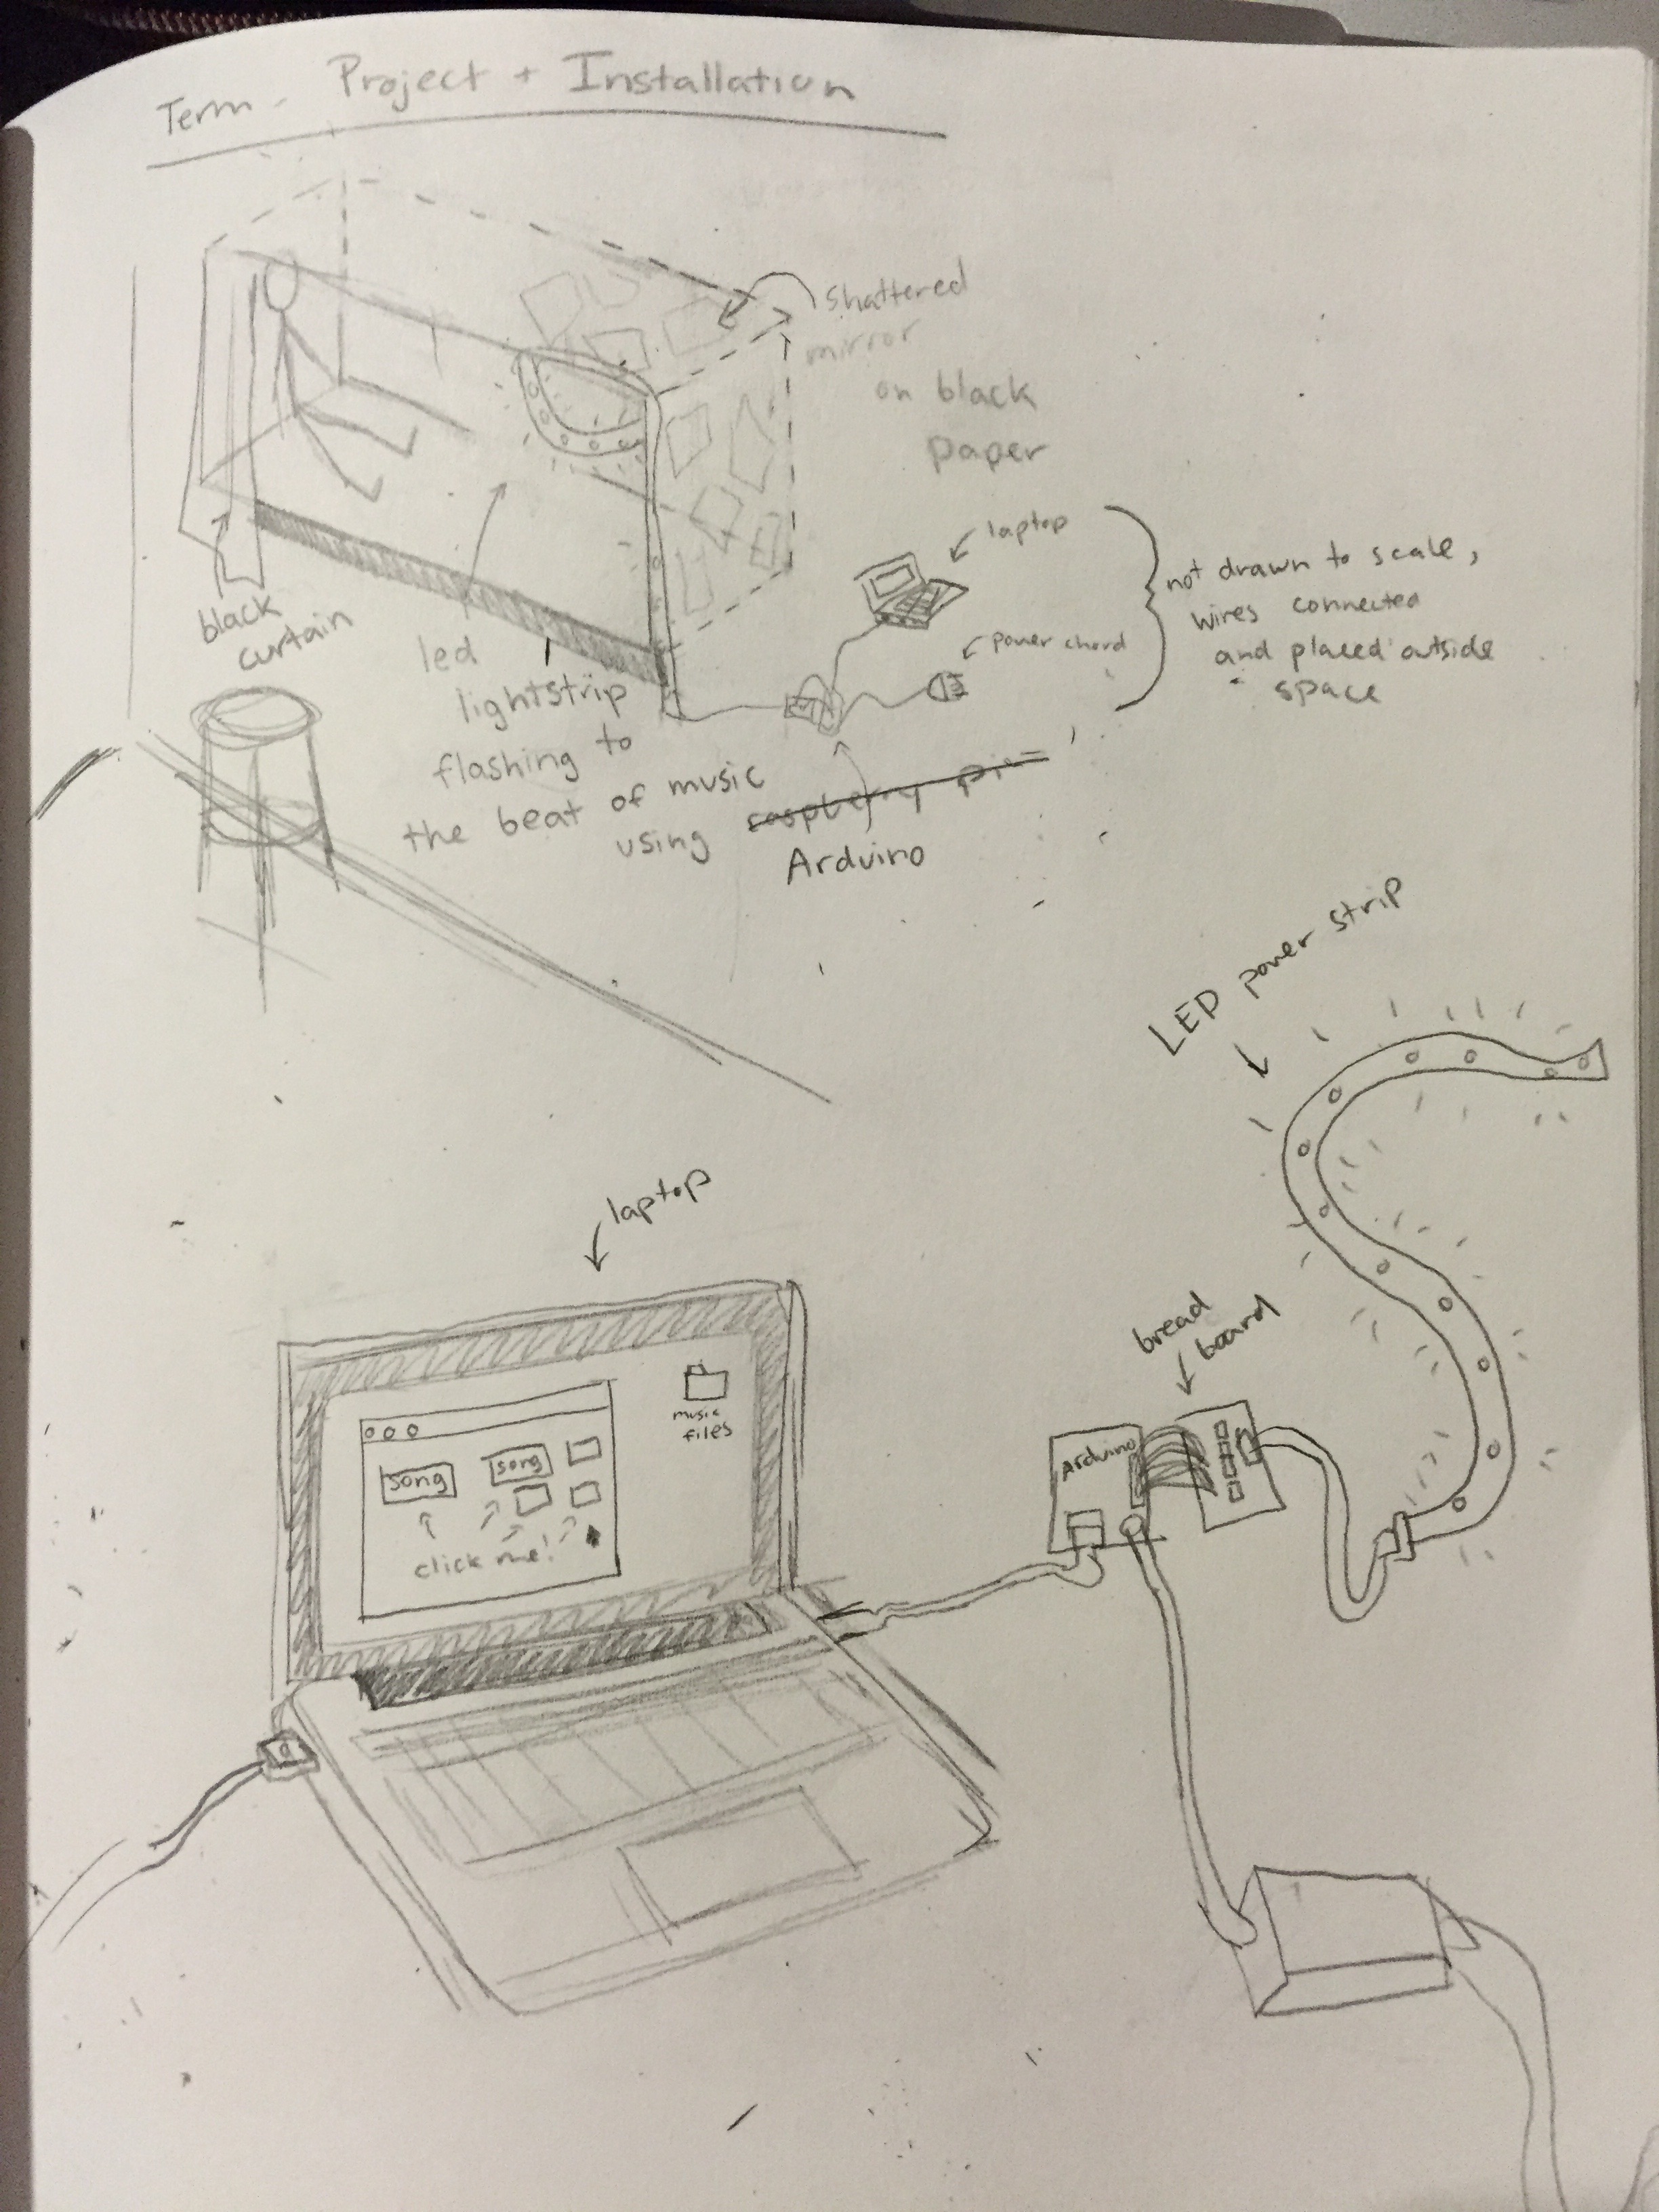 Term - Project + Installation
shattered
mirror
on black
paper
laptop
power chord
not drawn to scale,
wires connected
and placed outside
space
black
curtain
led
lightstrip
flashing to
the beat of music
using raspberry pi
Arduino
LED power strip
laptop
bread
board
music
files
song
song
click me!
Arduino